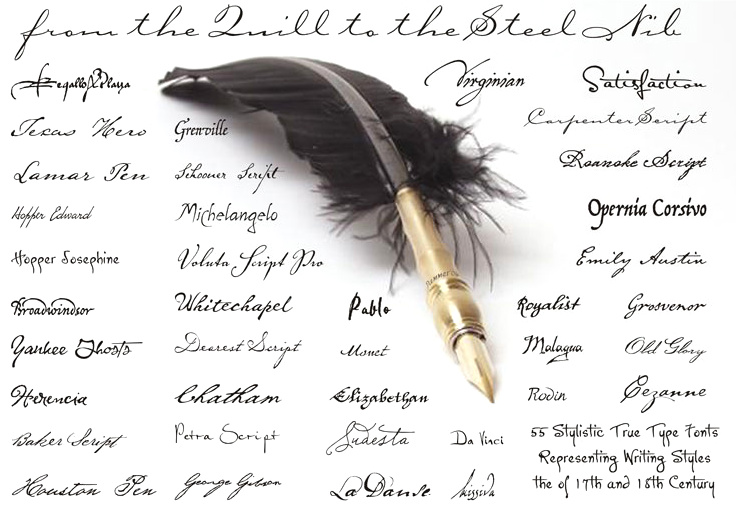 from the Quill to the Steel Nib
Virginian
Satisfaction
Texas Hero
Grenville
CarpenterScript
Lamar Pen
Schooner Script
Roanoke Script
Hopper Edward
Michelangelo
Opernia Corsivo
Hopper Josephine
Voluta Script Pro
Emily Austin
Broadwindsor
Whitechapel
Pablo
Royalist
Grosvenor
Yankee Ghosts
Dearest Script
Monet
Malagua
Old Glory
Herencia
Chatham
Elizabethan
Rodin
Cezanne
Baker Script
Petra Script
Da Vinci
55 Stylistic True Type Fonts
Representing Writing Styles
the of 17th and 18th Century
Houston Pen
George Gibson
La Danse